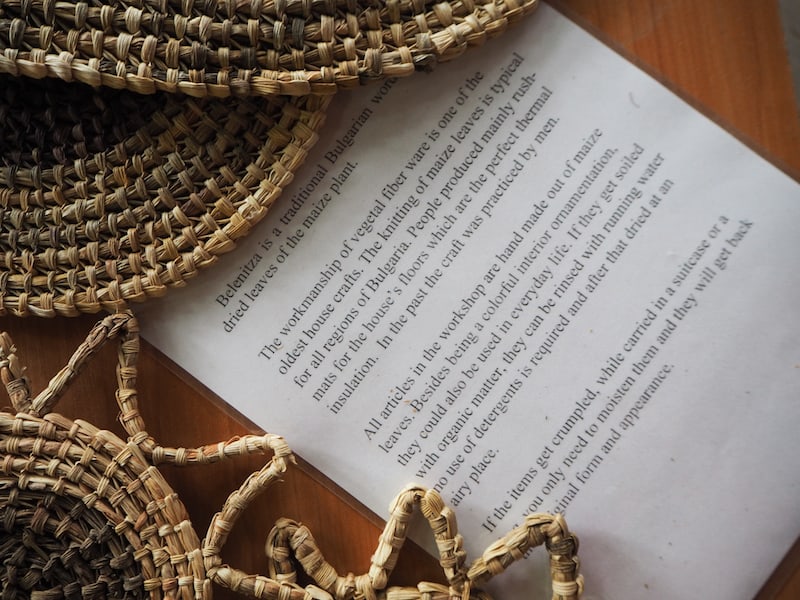 Belenitza is a traditional Bulgarian
dried leaves of the maize plant.
The workmanship of vegetal fiber ware is one of the
oldest house crafts. The knitting of maize leaves is typical
for all regions of Bulgaria. People produced mainly rush-
mats for the house's floors which are the perfect thermal
insulation. In the past the craft was practiced by men.
All articles in the workshop are hand made out of maize
leaves. Besides being a colorful interior ornamentation,
they could also be used in everyday life. If they get soiled
with organic matter, they can be rinsed with running water
no use of detergents is required and after that dried at an
airy place.
If the items get crumpled, while carried in a suitcase or a
you only need to moisten them and they will get back
form and appearance.